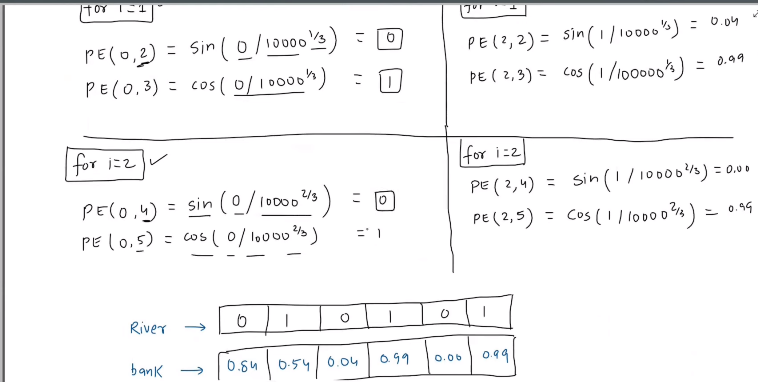 for i=1
PE(0,2) = sin(0/10000^1/3) = 0
PE(0,3) = cos(0/10000^1/3) = 1
PE(2,2) = sin(1/10000^1/3) = 0.04
PE(2,3) = cos(1/100000^1/3) = 0.99
for i=2 ✓
PE(0,4) = sin(0/10000^2/3) = 0
PE(0,5) = cos(0/10000^2/3) = 1
for i=2
PE(2,4) = sin(1/10000^2/3) = 0.00
PE(2,5) = cos(1/10000^2/3) = 0.99
River → 0 1 0 1 0 1
bank → 0.84 0.54 0.04 0.99 0.00 0.99